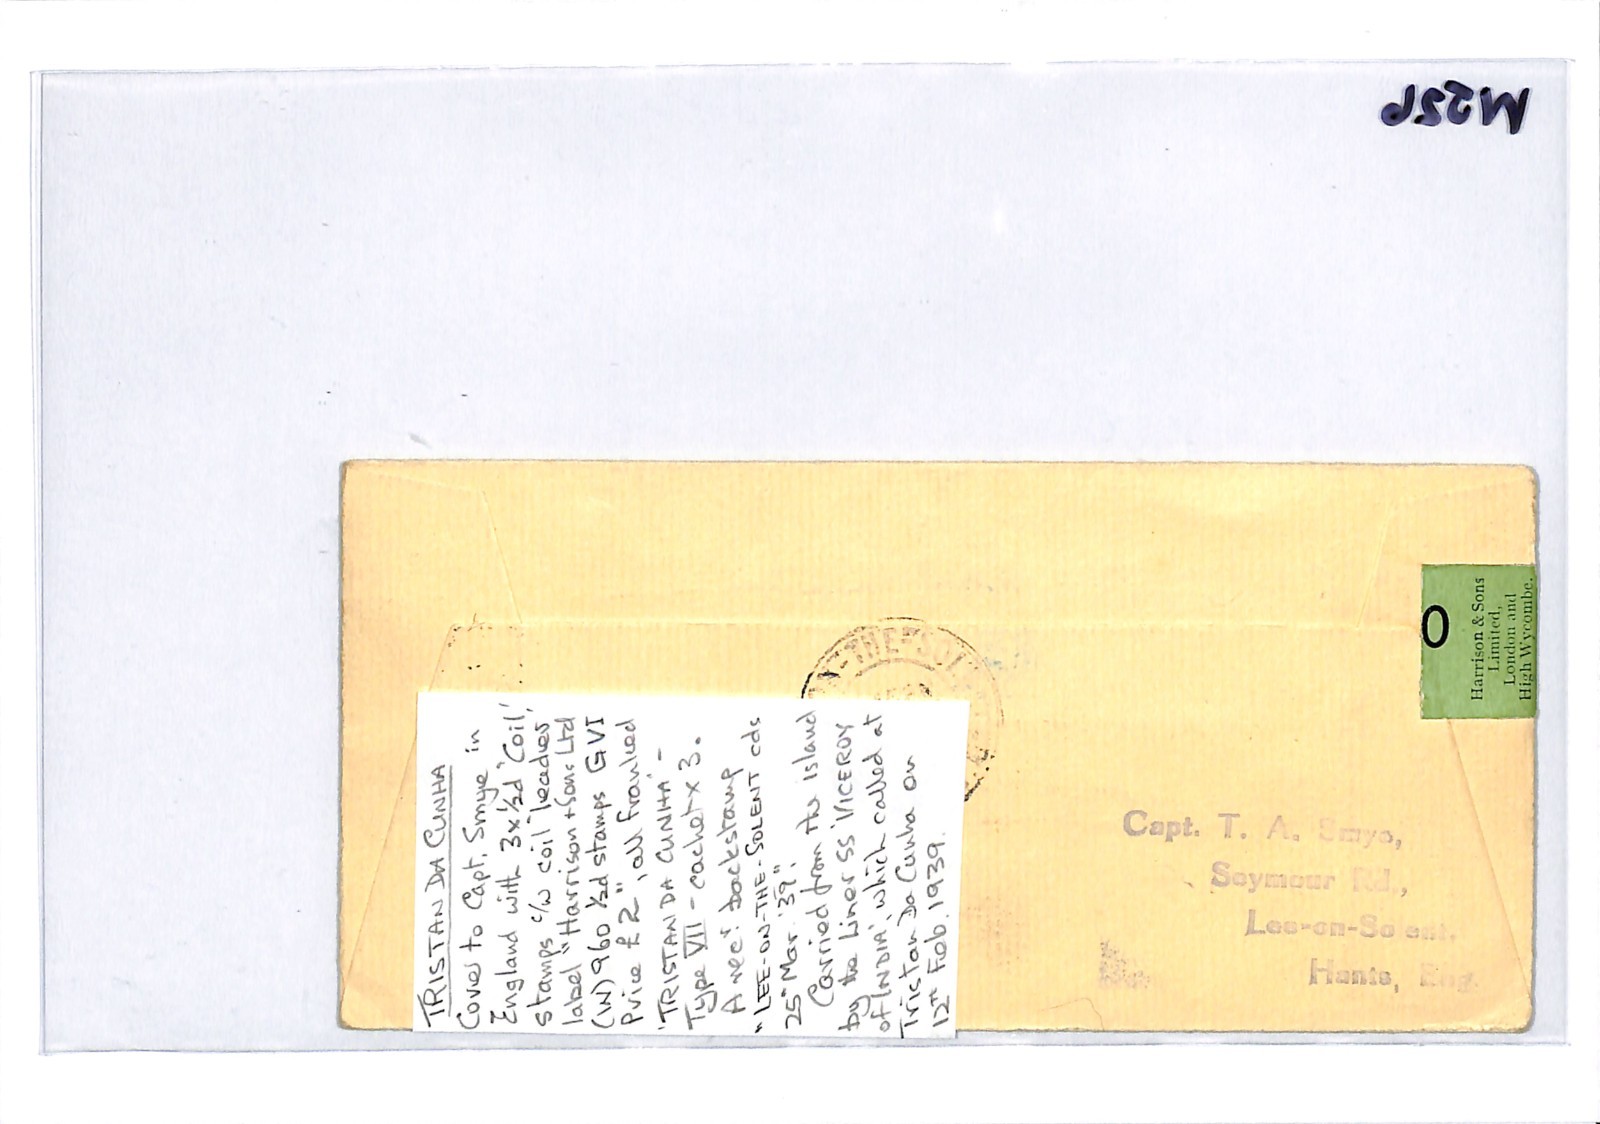 M226
TRISTAN DA CUNHA
Cover to Capt. Smye in
England with 3x½d 'Coil'
stamps c/w coil "leader
label "Harrison + Sons Ltd
(W) 960 ½d stamps GVI
Price £2", all franked
'TRISTAN DA CUNHA' -
Type VII - cachet x 3.
A rec'. backstamp
"LEE-ON-THE-SOLENT cds
25 Mar. '39".
Carried from the island
by the Liner SS 'VICEROY
of INDIA', which called at
Tristan Da Cunha on
12TH Feb. 1939.
-THE-SOL
O
Harrison & Sons
Limited,
London and
High Wycombe.
Capt. T. A. Smye,
Seymour Rd.,
Lee-on-Solent.
Hants, Eng.